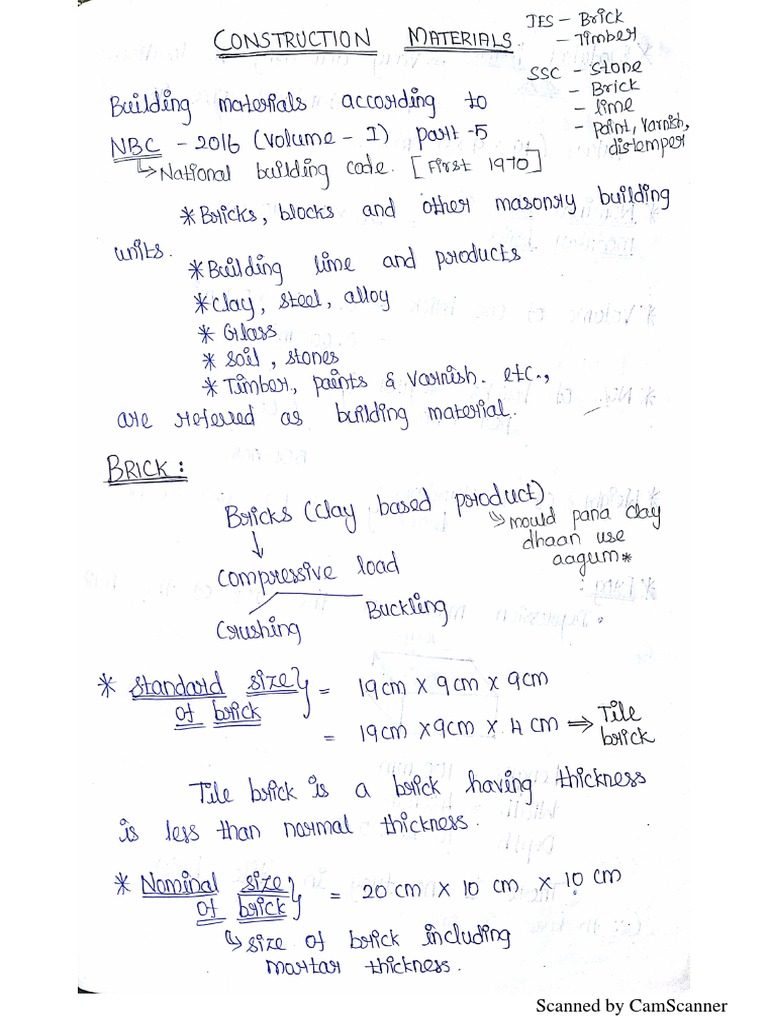 CONSTRUCTION MATERIALS
JES - Brick
- Timber
SSC - stone
- Brick
- lime
- paint, varnish,
distemper
Building materials according to
NBC - 2016 (Volume - I) part -5
↳ National building code. [First 1970]
* Bricks, blocks and other masonry building
units.
* Building lime and products
* Clay, steel, alloy
* Glass
* Soil, stones
* Timber, paints & varnish. etc.,
are referred as building material.
BRICK:
Bricks (clay based product)
↳ mould pana clay
dhaan use
aagum*
↓
compressive load
Crushing Buckling
* Standard size } = 19cm x 9cm x 9cm
of brick = 19cm x 9cm x 4cm ⇒ Tile
brick
Tile brick is a brick having thickness
is less than normal thickness.
* Nominal size } = 20 cm x 10 cm x 10 cm
of brick
↳ size of brick including
mortar thickness.
Scanned by CamScanner